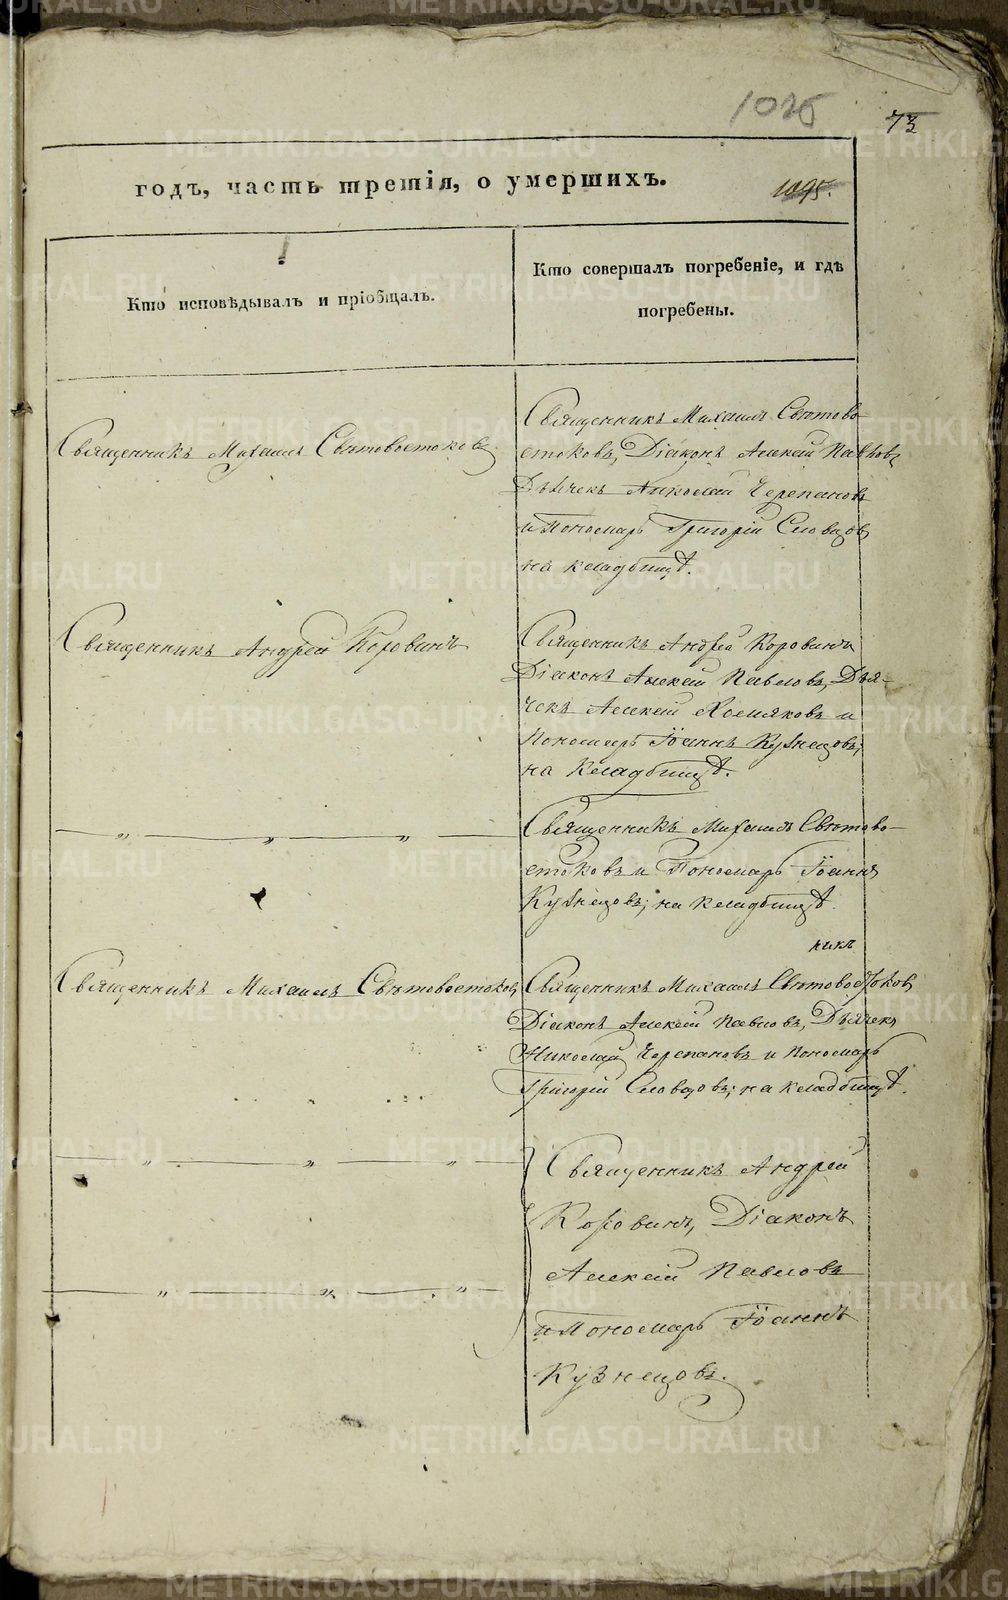 1026
73
годъ, часть третія, о умершихъ.
1095.
Кто исповѣдывалъ и пріобщалъ.
Кто совершалъ погребеніе, и гдѣ
погребены.
Священникъ Михаилъ Свѣтовостоковъ
Священникъ Михаилъ Свѣтово-
стоковъ, Діаконъ Алексѣй Павловъ
Дьячекъ Николай Черепановъ
и Пономарь Григорій Словцовъ
на кладбищѣ.
Священникъ Андрей Коровинъ
Священникъ Андрей Коровинъ
Діаконъ Алексѣй Павловъ, Дья-
чекъ Алексѣй Хомяковъ и
Пономарь Іоаннъ Кузнецовъ;
на Кладбищѣ.
— „ — „ — „ —
Священникъ Михаилъ Свѣтово-
стоковъ и Пономарь Іоаннъ
Кузнецовъ; на кладбищѣ.
Священникъ Михаилъ Свѣтовостоковъ
Священникъ Михаилъ Свѣтовостоковъ
Діаконъ Алексѣй Павловъ, Дьячекъ
Николай Черепановъ и Пономарь
Григорій Словцовъ; на кладбищѣ.
— „ — „ — „ —
Священникъ Андрей
Коровинъ, Діаконъ
Алексѣй Павловъ
— „ — „ — „ —
и Пономарь Іоаннъ
Кузнецовъ.
METRIKI.GASO-URAL.RU